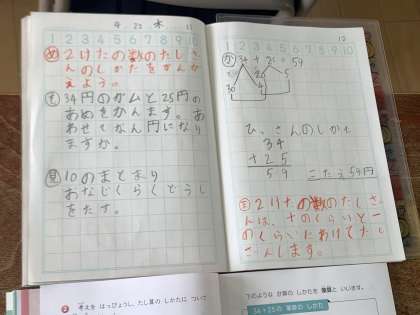 4.22 木 11
1 2 3 4 5 6 7 8 9 10
め 2けたの数のたしさ
んのしかたをかんが
えよう。
も 34円のガムと25円の
あめをかいます。あ
わせてなん円になり
ますか。
見 10のまとまり
おなじくらいどうし
をたす。
12
1 2 3 4 5 6 7 8 9 10
か 34+25=59
5
30 4
ひっさんのしかた
34
+25
59 こたえ59円
ま 2けたの数のたしざ
んは、十のくらいと一
のくらいにわけてたし
ざんします。
2 考えを はっぴょうし、たし算の しかたに ついて
下のような 計算の しかたを 筆算と いいます。
34+25の 筆算の しかた